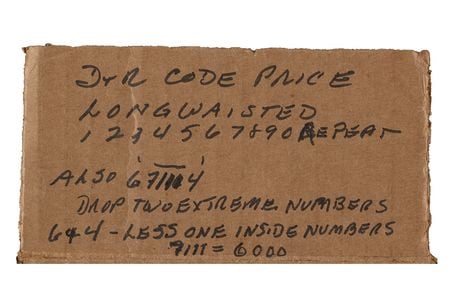 D&R CODE PRICE
LONGWAISTED
1 2 3 4 5 6 7 8 9 0 REPEAT
ALSO 671114
DROP TWO EXTREME NUMBERS
6&4 - LESS ONE INSIDE NUMBERS
7111 = 6000